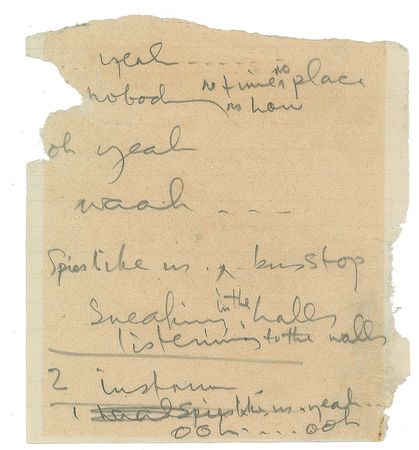 yeah - - - - - -
nobody no time no place
no how
oh yeah
waaah - - -
Spies like us . bus stop
Sneaking in the halls
listening to the walls
2 instrum.
1 Spies like us . yeah ...
ooh .... ooh